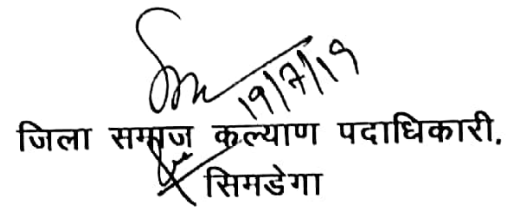 19/7/19
जिला समाज कल्याण पदाधिकारी,
सिमडेगा